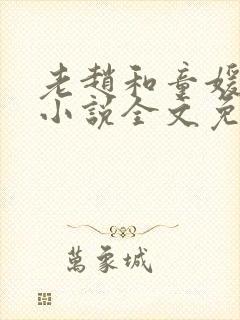 老趙和童媛
小說全文免
萬象城